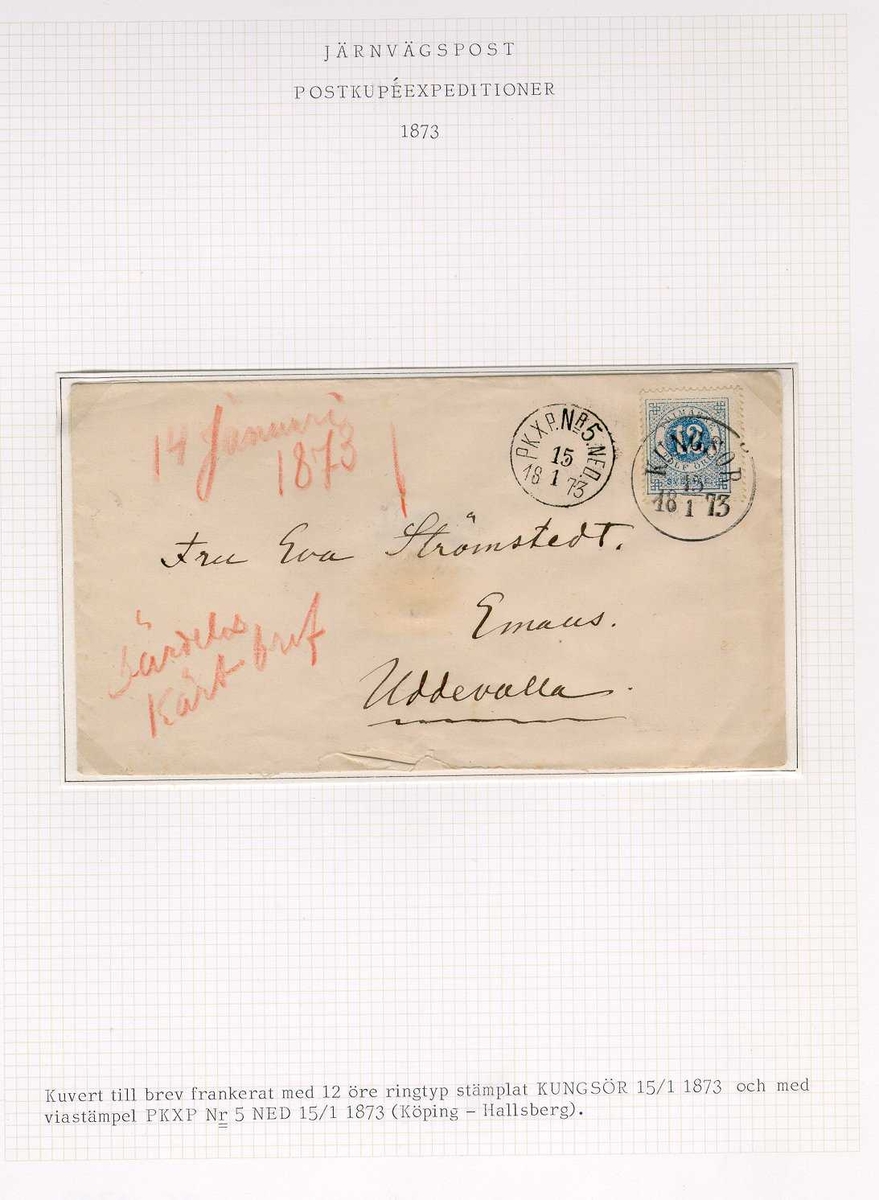 JÄRNVÄGSPOST
POSTKUPÉEXPEDITIONER
1873
14 Januari
1873
PKXP.Nr5.NED
15
18 1 73
KUNGSÖR
15
18 1 73
12
Fru Eva Strömstedt.
Emaus.
Uddevalla.
Särdeles
Kärt bref
Kuvert till brev frankerat med 12 öre ringtyp stämplat KUNGSÖR 15/1 1873 och med
viastämpel PKXP Nr 5 NED 15/1 1873 (Köping - Hallsberg).